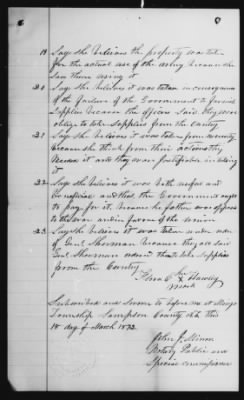 19 Says she believes the property was taken
for the actual use of the army because she
saw them using it
20 Says she believes it was taken in consequence
of the failure of the Government to furnish
supplies because the officers said they were
oblige to take supplies from the County
21 Says she believes it was taken from necessity
because she think from their actions they
needed it and they was justifiable in taking
it
22 Says she believes it was both useful and
beneficial and that the Government ought
to pay for it because her father was opposed
to the war and in favor of the union
23 Says she believes it was taken under order
of Genl Sherman because they all said
Genl Sherman ordered them to take supplies
from the Country
her
X
mark
Subscribed and Sworn to before me at
Township Sampson County N.C. this
18 day of March 1873
John J.
Notary Public and
Special commissioner